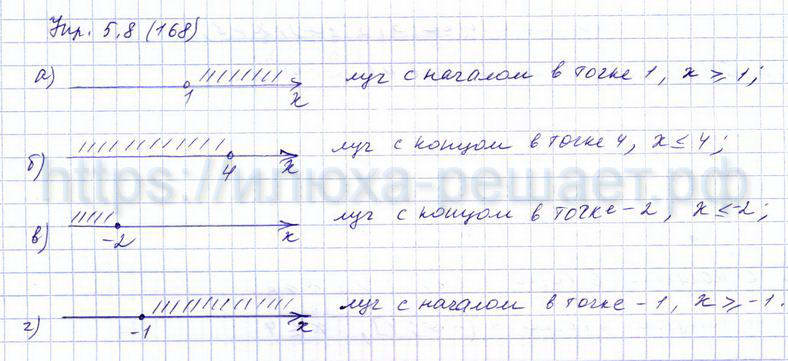 Упр. 5.8 (168)
а) 1 x луч с началом в точке 1, x ⩾ 1;
б) 4 x луч с концом в точке 4, x ≤ 4;
https://илюха-решает.рф
в) -2 x луч с концом в точке -2, x ≤ -2;
г) -1 x луч с началом в точке -1, x ⩾ -1.